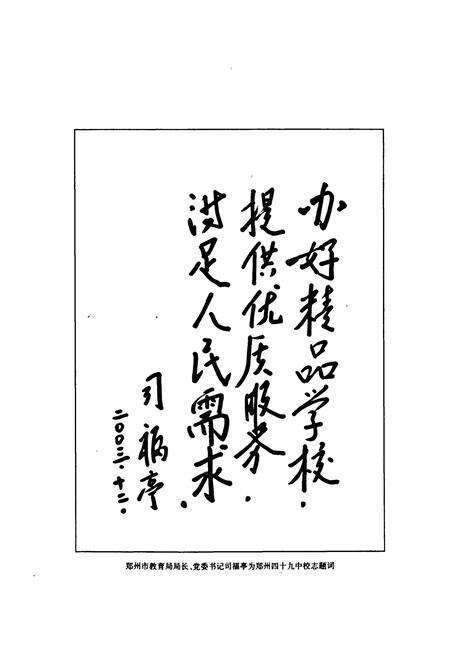 办好精品学校.
提供优质服务.
满足人民需求.
司福亭
二〇〇三·十二·
郑州市教育局局长、党委书记司福亭为郑州四十九中校志题词